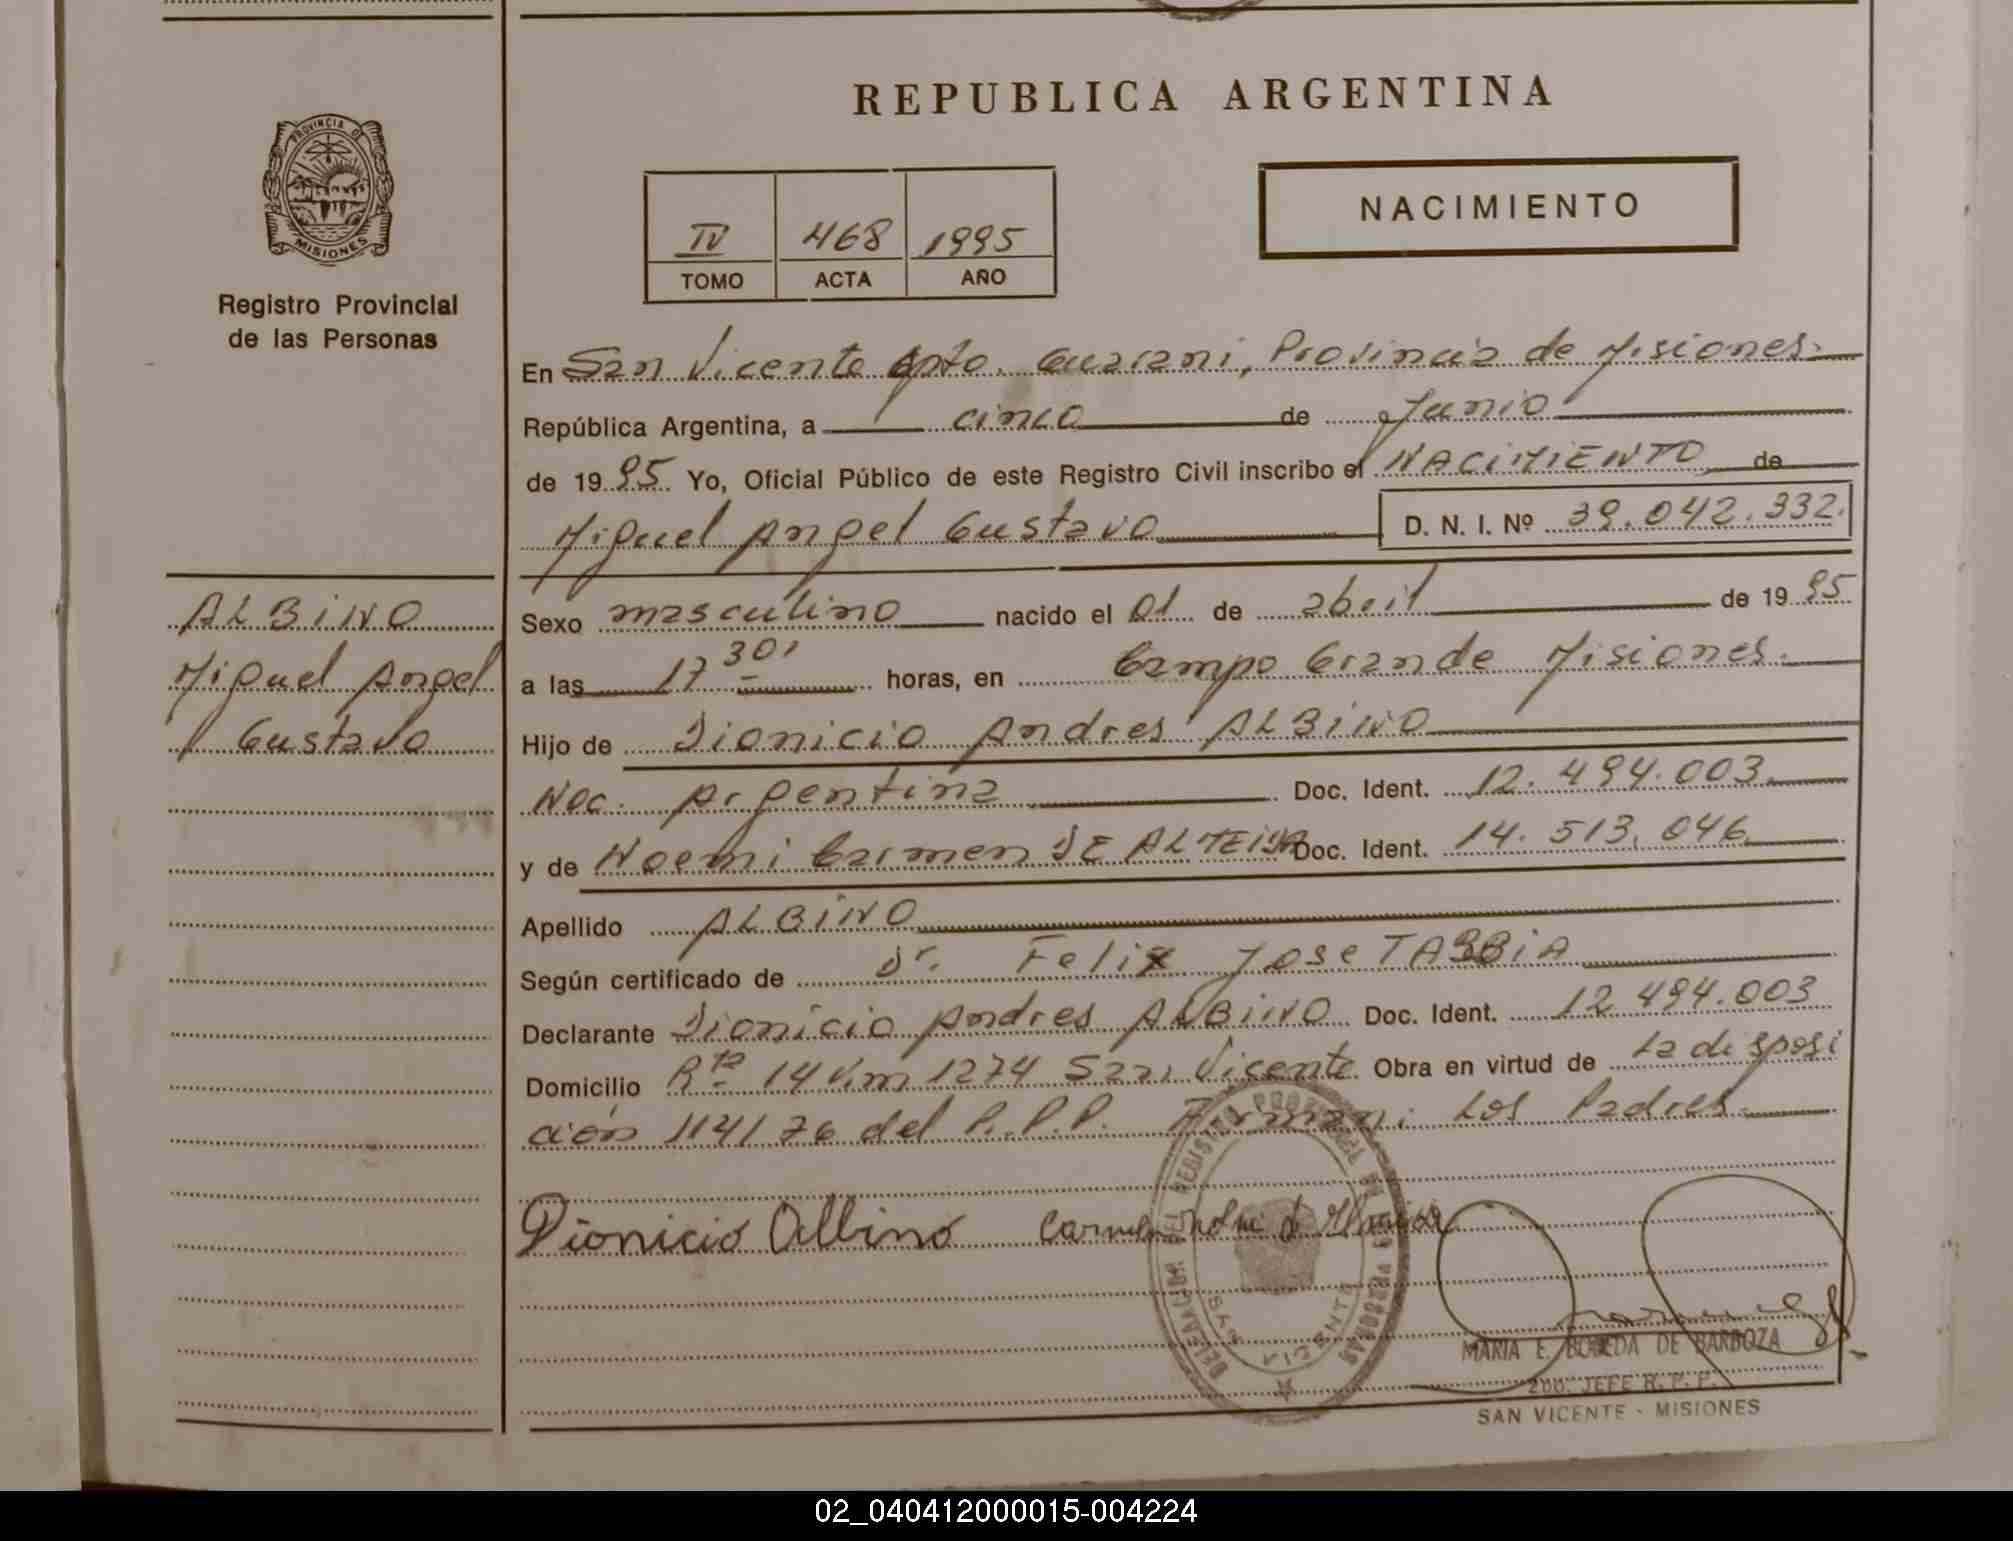 REPUBLICA ARGENTINA
PROVINCIA DE
MISIONES
Registro Provincial
de las Personas
IV 468 1995
TOMO ACTA AÑO
NACIMIENTO
En San Vicente Dpto. Guarani, Provincia de Misiones.
República Argentina, a cinco de Junio
de 1995 Yo, Oficial Público de este Registro Civil inscribo el NACIMIENTO de
Miguel Angel Gustavo D. N. I. Nº 39.042.332.
ALBINO
Miguel Angel
Gustavo
Sexo masculino nacido el 01 de abril de 1995
a las 17 30' horas, en Campo Grande Misiones.
Hijo de Dionicio Andres ALBINO
Nac. Argentina Doc. Ident. 12.494.003
y de Noemi Carmen DE ALMEIDA Doc. Ident. 14.513.046
Apellido ALBINO
Según certificado de Dr. Felix Jose TABBIA
Declarante Dionicio Andres ALBINO Doc. Ident. 12.494.003
Domicilio Rta 14 Km 1274 San Vicente Obra en virtud de La disposi
ción 114/76 del R.P.P. Firman: Los Padres
Dionicio Albino Carmen
DELEGACION DEL REGISTRO PROVINCIAL DE LAS PERSONAS
SAN VICENTE
MARIA E. DE BARBOZA
2do. JEFE R. P. P.
SAN VICENTE - MISIONES
02_040412000015-004224